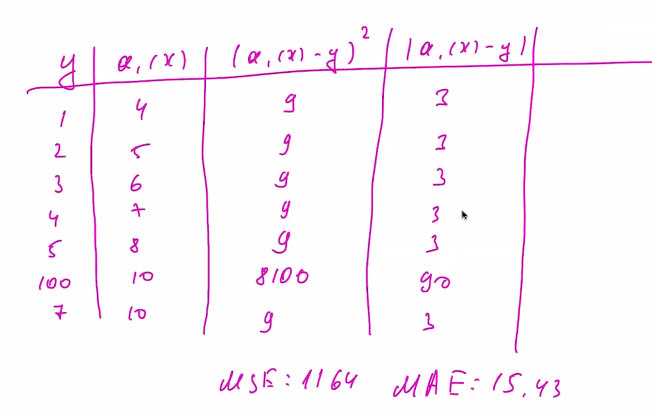 y | a₁(x) | (a₁(x) - y)² | |a₁(x) - y| |
1 4 9 3
2 5 9 3
3 6 9 3
4 7 9 3
5 8 9 3
100 10 8100 90
7 10 9 3
MSE: 1164 MAE: 15.43